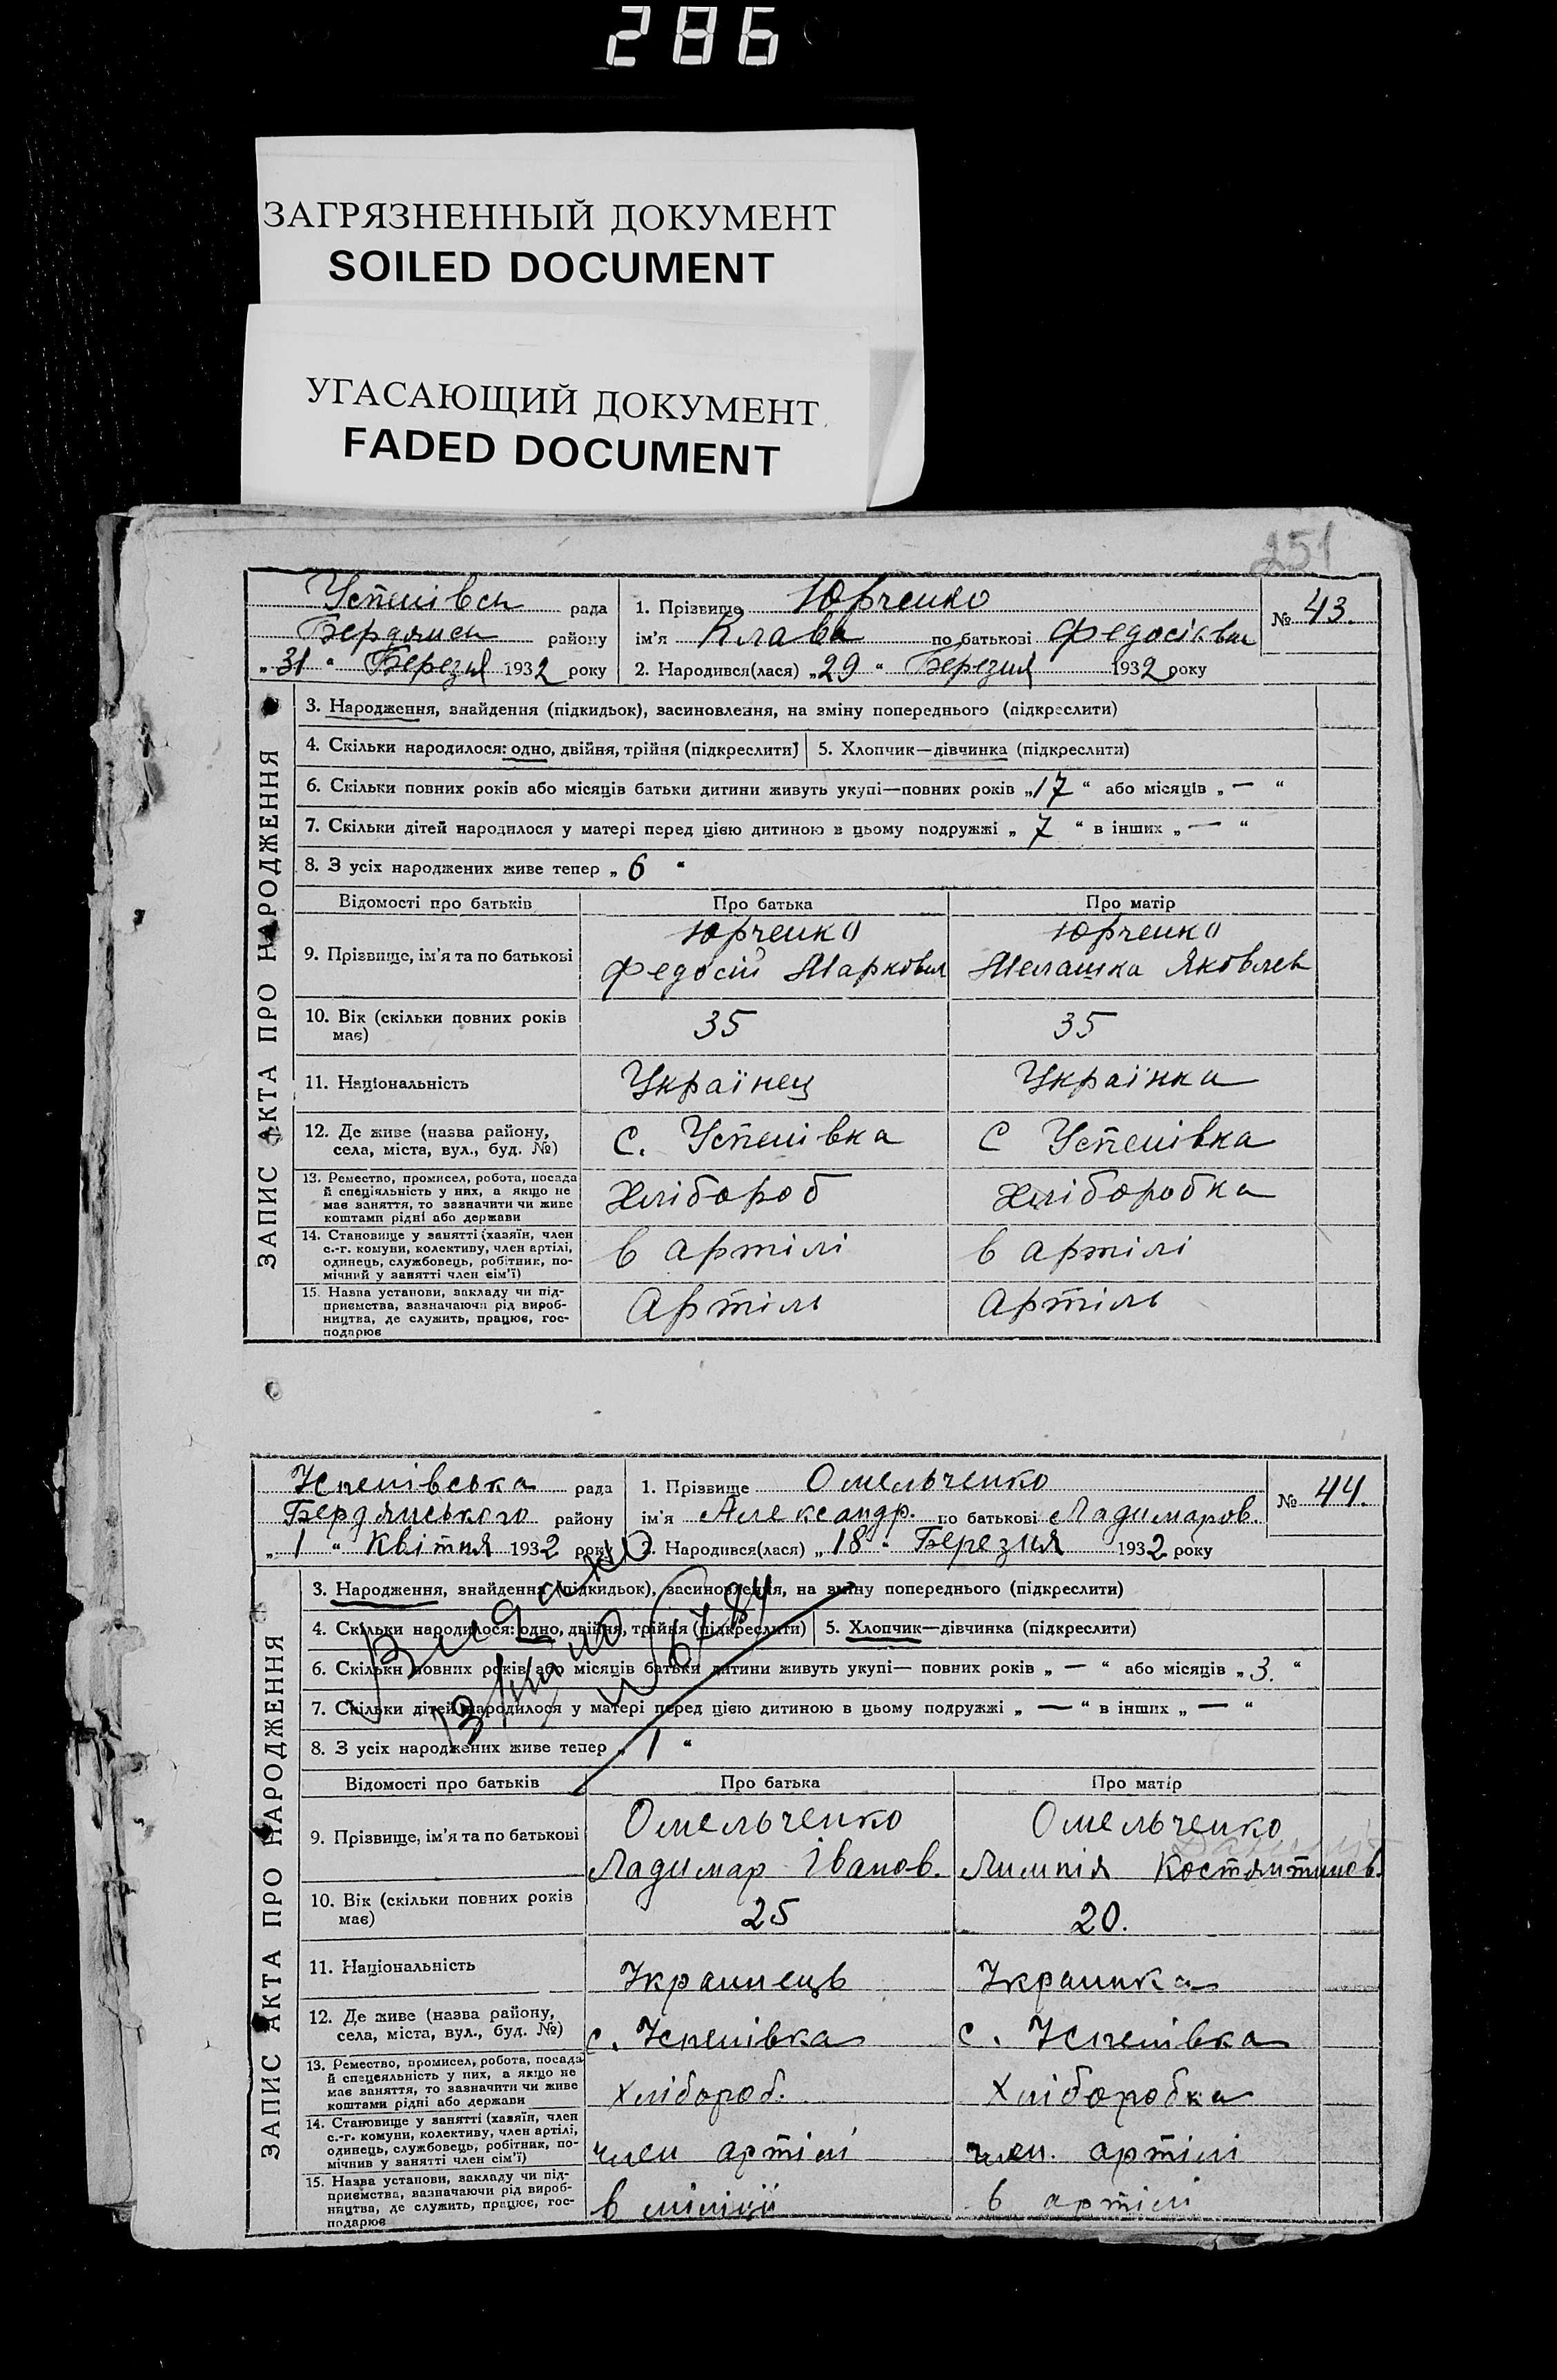 286
ЗАГРЯЗНЕННЫЙ ДОКУМЕНТ
SOILED DOCUMENT
УГАСАЮЩИЙ ДОКУМЕНТ
FADED DOCUMENT
251
ЗАПИС АКТА ПРО НАРОДЖЕННЯ
Успенівськ рада
Бердянськ району
„31“ Березня 1932 року
1. Прізвище Юрченко
ім'я Клава по батькові Федосіївна
№ 43.
2. Народився(лася) „29“ Березня 1932 року
3. Народження, знайдення (підкидьок), засиновлення, на зміну попереднього (підкреслити)
4. Скільки народилося: одно, двійня, трійня (підкреслити) 5. Хлопчик—дівчинка (підкреслити)
6. Скільки повних років або місяців батьки дитини живуть укупі—повних років „17“ або місяців „—“
7. Скільки дітей народилося у матері перед цією дитиною в цьому подружжі „7“ в інших „—“
8. З усіх народжених живе тепер „6“
Відомості про батьків Про батька Про матір
9. Прізвище, ім'я та по батькові
Юрченко Юрченко
Федосій Маркович Мелашка Яковлев
10. Вік (скільки повних років
має)
35 35
11. Національність Українец Українка
12. Де живе (назва району,
села, міста, вул., буд. №)
с. Успенівка с Успенівка
13. Ремество, промисел, робота, посада
й спеціяльність у них, а якщо не
має заняття, то зазначити чи живе
коштами рідні або держави
Хлібороб Хліборобка
14. Становище у занятті (хазяїн, член
с.-г. комуни, колективу, член артілі,
одинець, службовець, робітник, по-
мічний у занятті член сім'ї)
в артілі в артілі
15. Назва установи, закладу чи під-
приємства, зазначаючи рід вироб-
ництва, де служить, працює, гос-
подарює
Артіль Артіль
ЗАПИС АКТА ПРО НАРОДЖЕННЯ
Успенівська рада
Бердянського району
„1“ Квітня 1932 року
1. Прізвище Омельченко
ім'я Александр. по батькові Ладимаров.
№ 44.
2. Народився(лася) „18“ Березня 1932 року
3. Народження, знайдення (підкидьок), засиновлення, на зміну попереднього (підкреслити)
4. Скільки народилося: одно, двійня, трійня (підкреслити) 5. Хлопчик—дівчинка (підкреслити)
6. Скільки повних років або місяців батьки дитини живуть укупі— повних років „—“ або місяців „3.“
7. Скільки дітей народилося у матері перед цією дитиною в цьому подружжі „—“ в інших „—“
8. З усіх народжених живе тепер „1“
Видано
Відомості про батьків Про батька Про матір
9. Прізвище, ім'я та по батькові
Омельченко Омельченко
Ладимар Іванов. Лимпія Костянтинов.
10. Вік (скільки повних років
має)
25 20.
11. Національність Украинець Украинка
12. Де живе (назва району,
села, міста, вул., буд. №)
с. Успенівка с. Успенівка
13. Ремество, промисел, робота, посада
й спецеяльність у них, а якщо не
має заняття, то зазначити чи живе
коштами рідні або держави
Хлібороб. Хліборобка
14. Становище у занятті (хазяїн, член
с.-г. комуни, колективу, член артілі,
одинець, службовець, робітник, по-
мічнив у занятті член сім'ї)
член артілі член. артілі
15. Назва установи, закладу чи під-
приємства, вазначаючи рід вироб-
ництва, де служить, працює, гос-
подарює
в міліції в артілі